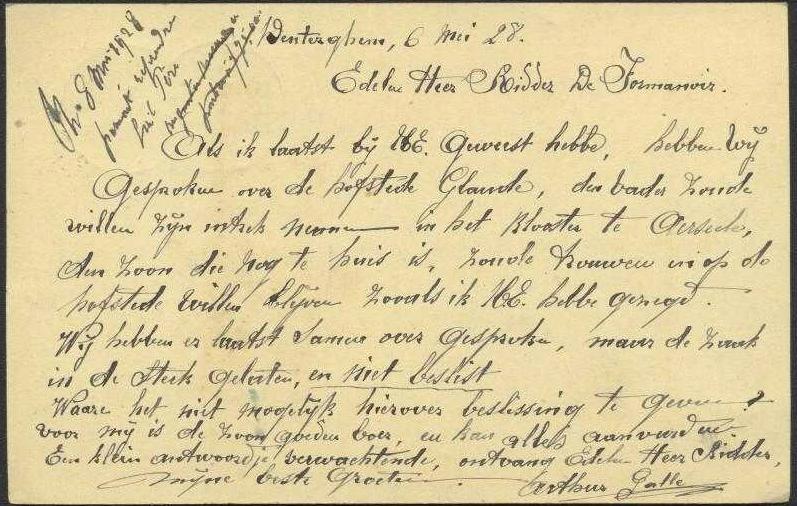 8 Mei 1928
Père
Venterghem, 6 Mei 28.
Edelen Heer Ridder De Formanoir.
Als ik laatst bij UE. Geweest hebbe, hebben Wij
Gesproken over de hofstede Glaude, den vader zoude
willen zijn intrek nemen in het klooster te
den zoon die nog te huis is, zoude trouwen en op de
hofstede willen blijven zooals ik UE. hebbe gezegd.
Wij hebben er laatst samen over gesproken, maar de zaak
in de steek gelaten, en niet beslist
Waare het niet mogelijk hierover beslissing te geven?
voor mij is de zoon goeden boer, en kan alles aanvurden
Een klein antwoordje verwachtende, ontvang Edelen Heer Ridder,
mijne beste Groeten.
Arthur Galle